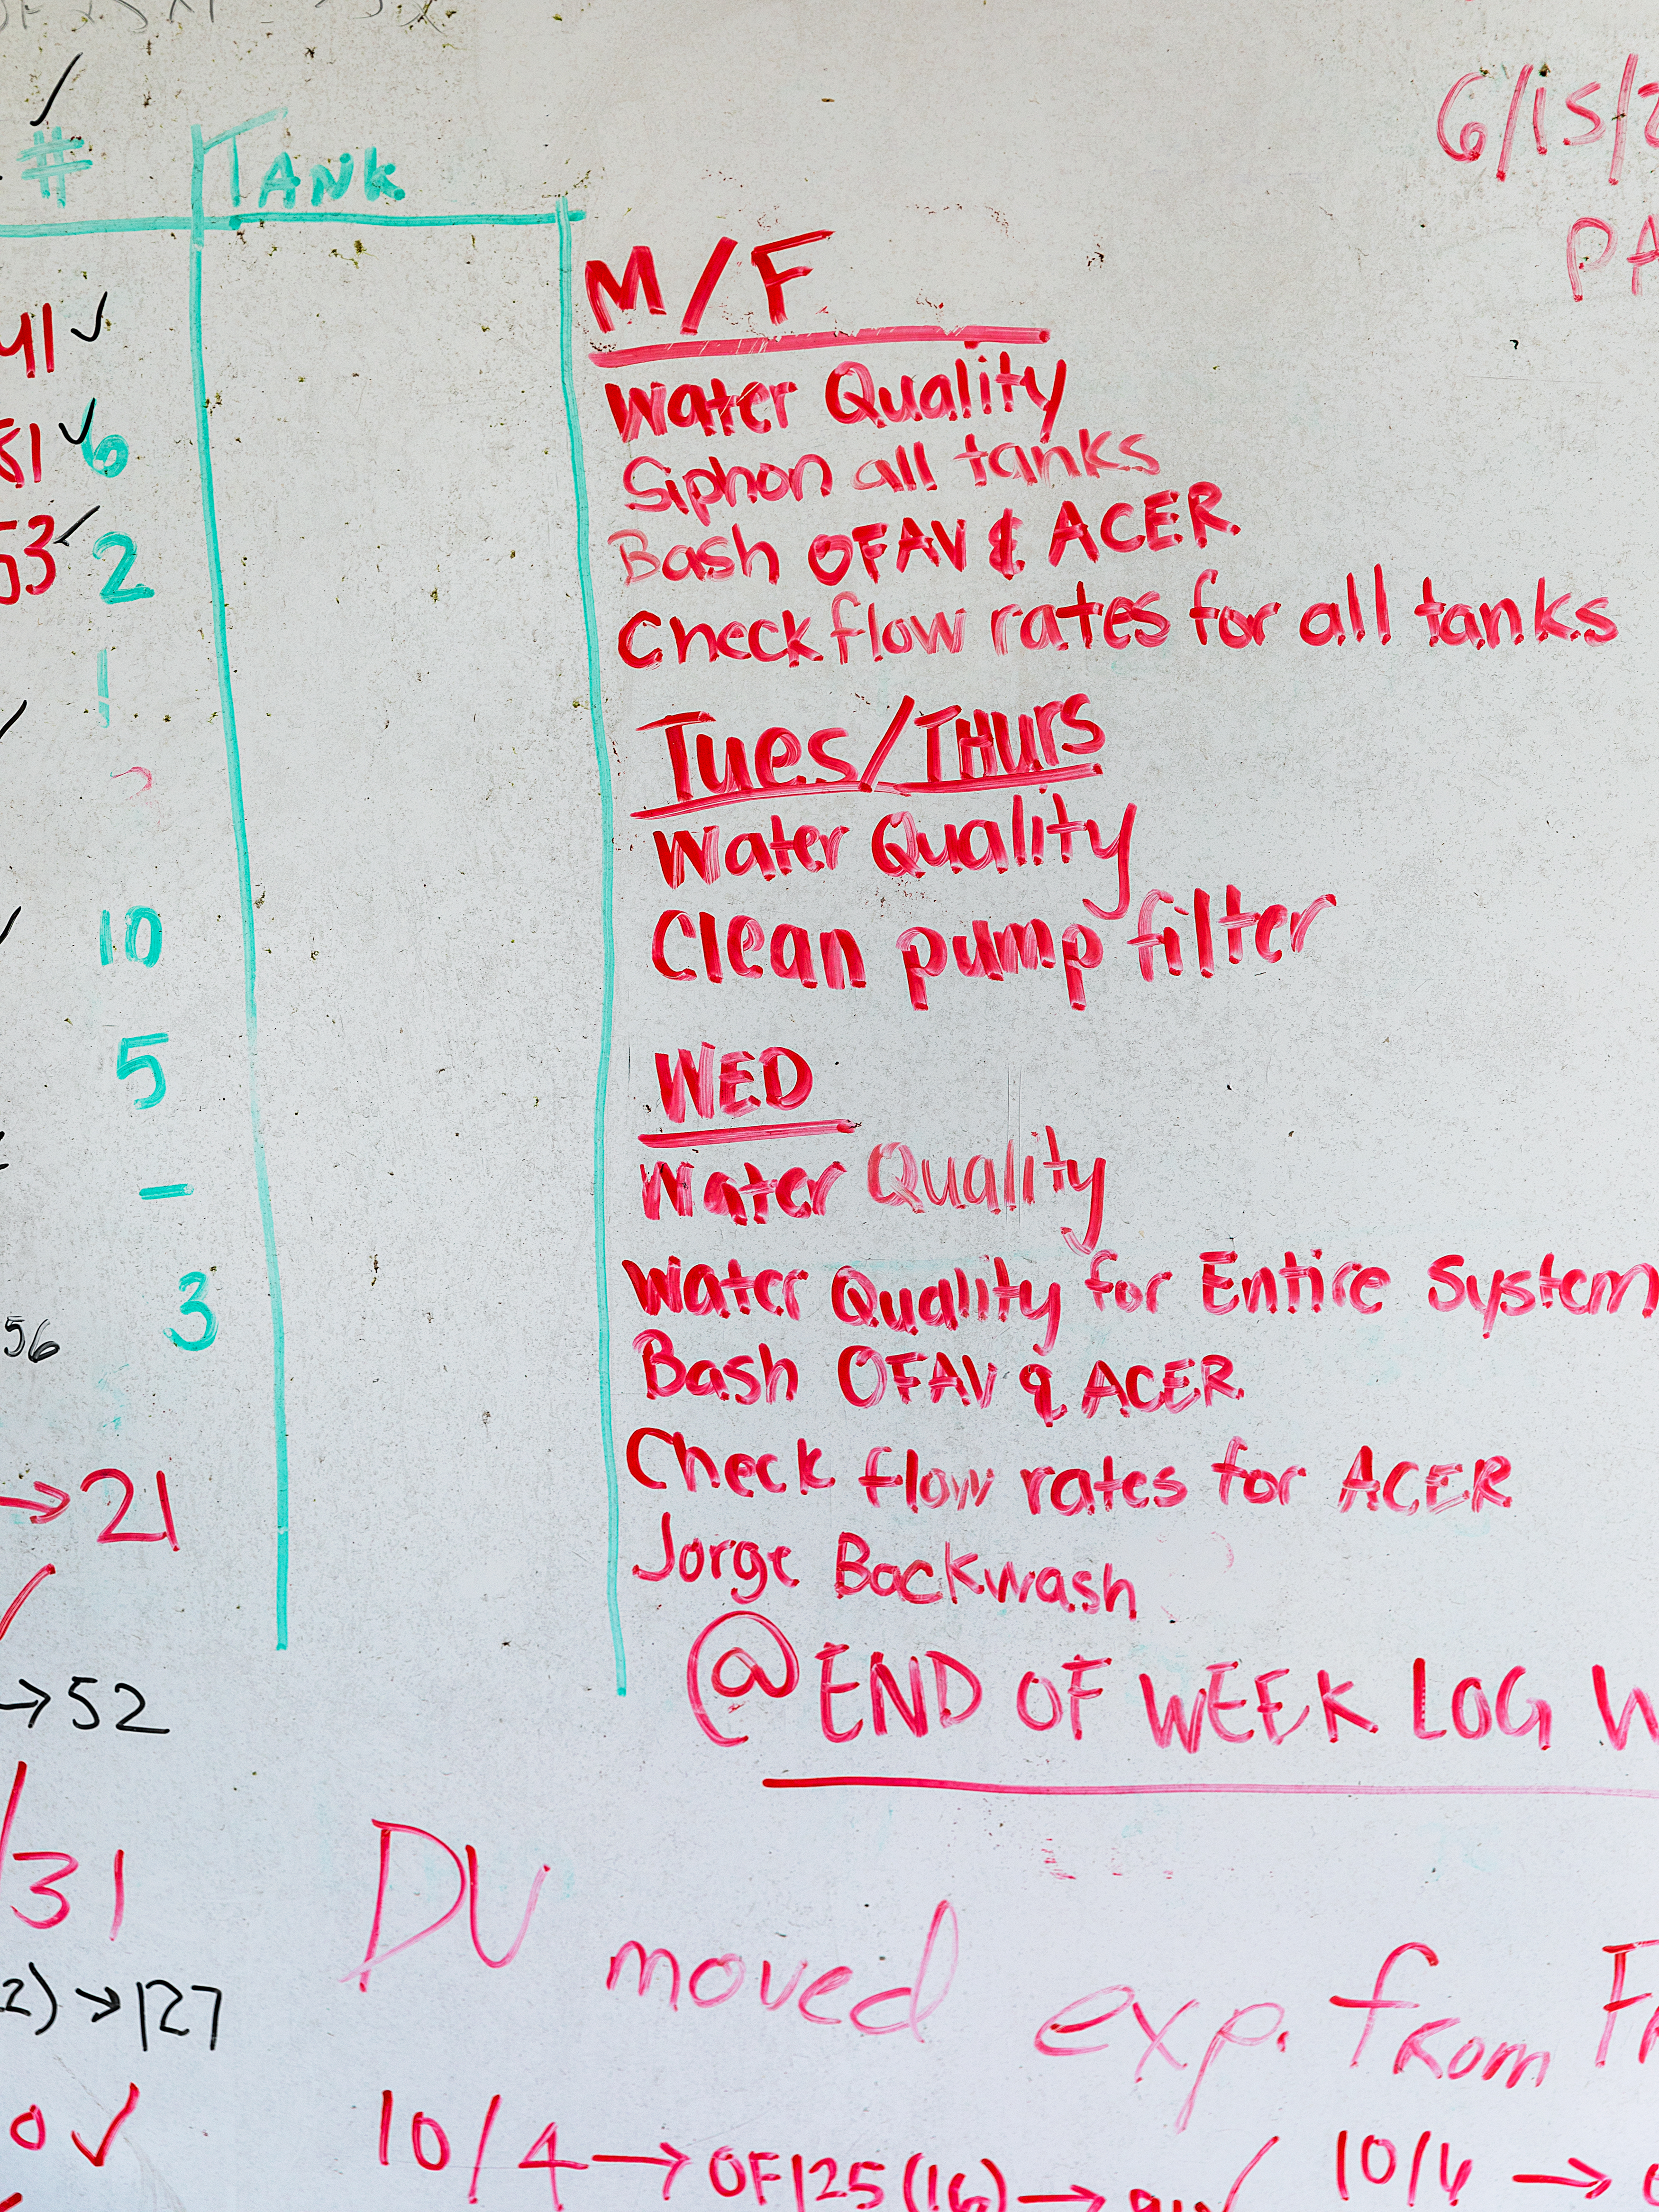 # TANK
6/15/
M/F
41 ✓
Water Quality
Siphon all tanks
81 ✓ 6
Bash OFAV & ACER
53 ✓ 2
Check flow rates for all tanks
Tues/THurs
Water Quality
10
Clean pump filter
5
WED
-
Water Quality
3
Water Quality for Entire System
56
Bash OFAV & ACER
Check flow rates for ACER
→ 21
Jorge Backwash
@ END OF WEEK LOG
→ 52
31
DU moved exp. from
2) → 127
0 ✓
10/4 → OF125 (16) →
10/6 →